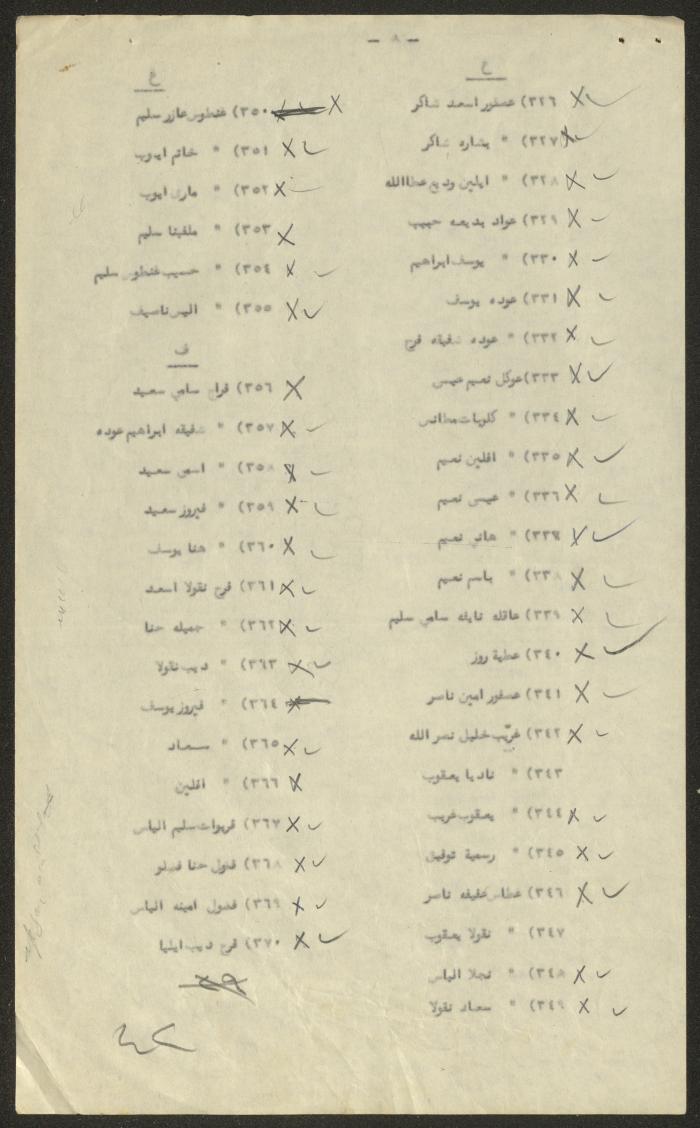 - ٨ -
ع
٣٢٦) عصفور اسعد شاكر
٣٢٧) " بشاره شاكر
٣٢٨) " ايلين وديع عطاالله
٣٢٩) عواد بديعه حبيب
٣٣٠) " يوسف ابراهيم
٣٣١) عوده يوسف
٣٣٢) " عوده شفيقه فرح
٣٣٣) عوكل نعيم عيسى
٣٣٤) " كلوبات
٣٣٥) " افلين نعيم
٣٣٦) " عيسى نعيم
٣٣٧) " هاني نعيم
٣٣٨) " باسم نعيم
٣٣٩) عاقله نايفه سامي سليم
٣٤٠) عطية روز
٣٤١) عصفور امين ناصر
٣٤٢) غريّب خليل نصر الله
٣٤٣ " ناديا يعقوب
٣٤٤) " يعقوب غريب
٣٤٥) " رسمية توفيق
٣٤٦) غطاس عفيفه ناصر
٣٤٧ " نقولا يعقوب
٣٤٨) " نجلا الياس
٣٤٩) " سعاد نقولا
غ
٣٥٠) غنطوس عازر سليم
٣٥١) " خاتم ايوب
٣٥٢) " ماري ايوب
٣٥٣) " ملفينا سليم
٣٥٤) " حسيب غنطوس سليم
٣٥٥) " اليس ناصيف
ف
٣٥٦) فراج سامي سعيد
٣٥٧) " شفيقه ابراهيم عوده
٣٥٨) " اسمى سعيد
٣٥٩) " فيروز سعيد
٣٦٠) " هنا يوسف
٣٦١) فرح نقولا اسعد
٣٦٢) " جميله حنا
٣٦٣) " ديب نقولا
٣٦٤) " فيروز يوسف
٣٦٥) " سعاد
٣٦٦) " افلين
٣٦٧) فريوات سليم الياس
٣٦٨) فضول حنا فضلو
٣٦٩) فضول امينه الياس
٣٧٠) فرح ديب ايليا